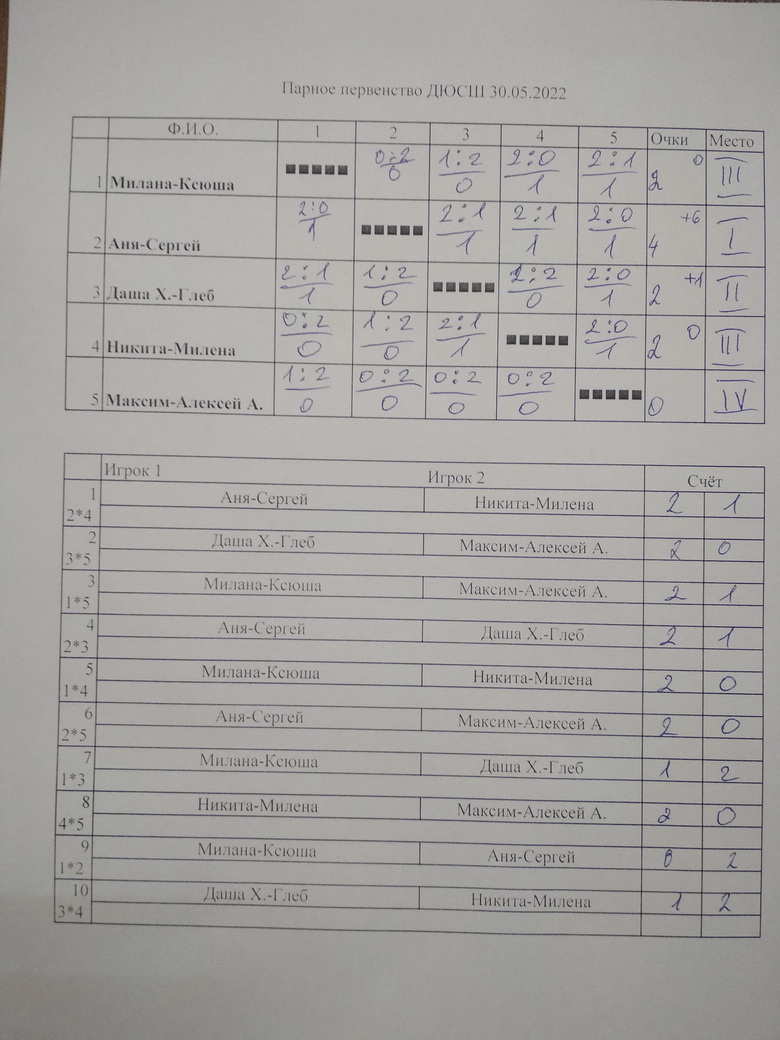 Парное первенство ДЮСШ 30.05.2022
Ф.И.О. 1 2 3 4 5 Очки Место
1 Милана-Ксюша ■■■■■ 0:2 0 1:2 0 2:0 1 2:1 1 2 0 III
2 Аня-Сергей 2:0 1 ■■■■■ 2:1 1 2:1 1 2:0 1 4 +6 I
3 Даша Х.-Глеб 2:1 1 1:2 0 ■■■■■ 1:2 0 2:0 1 2 +1 II
4 Никита-Милена 0:2 0 1:2 0 2:1 1 ■■■■■ 2:0 1 2 0 III
5 Максим-Алексей А. 1:2 0 0:2 0 0:2 0 0:2 0 ■■■■■ 0 IV
Игрок 1 Игрок 2 Счёт
1 Аня-Сергей Никита-Милена 2 1
2*4
2 Даша Х.-Глеб Максим-Алексей А. 2 0
3*5
3 Милана-Ксюша Максим-Алексей А. 2 1
1*5
4 Аня-Сергей Даша Х.-Глеб 2 1
2*3
5 Милана-Ксюша Никита-Милена 2 0
1*4
6 Аня-Сергей Максим-Алексей А. 2 0
2*5
7 Милана-Ксюша Даша Х.-Глеб 1 2
1*3
8 Никита-Милена Максим-Алексей А. 2 0
4*5
9 Милана-Ксюша Аня-Сергей 0 2
1*2
10 Даша Х.-Глеб Никита-Милена 1 2
3*4